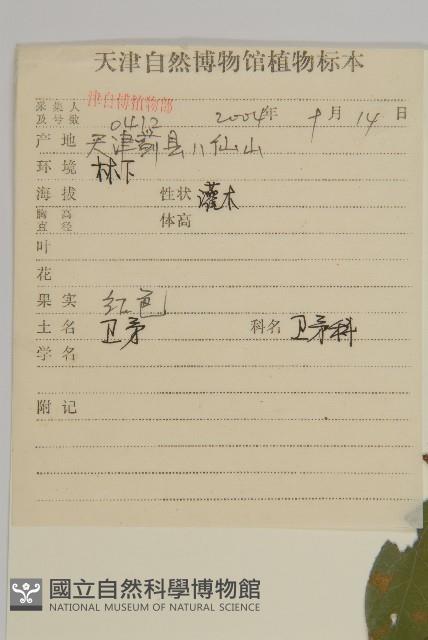 天津自然博物馆植物标本
采集人及号数 津自博植物部 0412 2004年 十月 14日
产地 天津蓟县八仙山
环境 林下
海拔 性状 灌木
胸高直径 体高
叶
花
果实 红色
土名 卫茅 科名 卫茅科
学名
附记
國立自然科學博物館
NATIONAL MUSEUM OF NATURAL SCIENCE